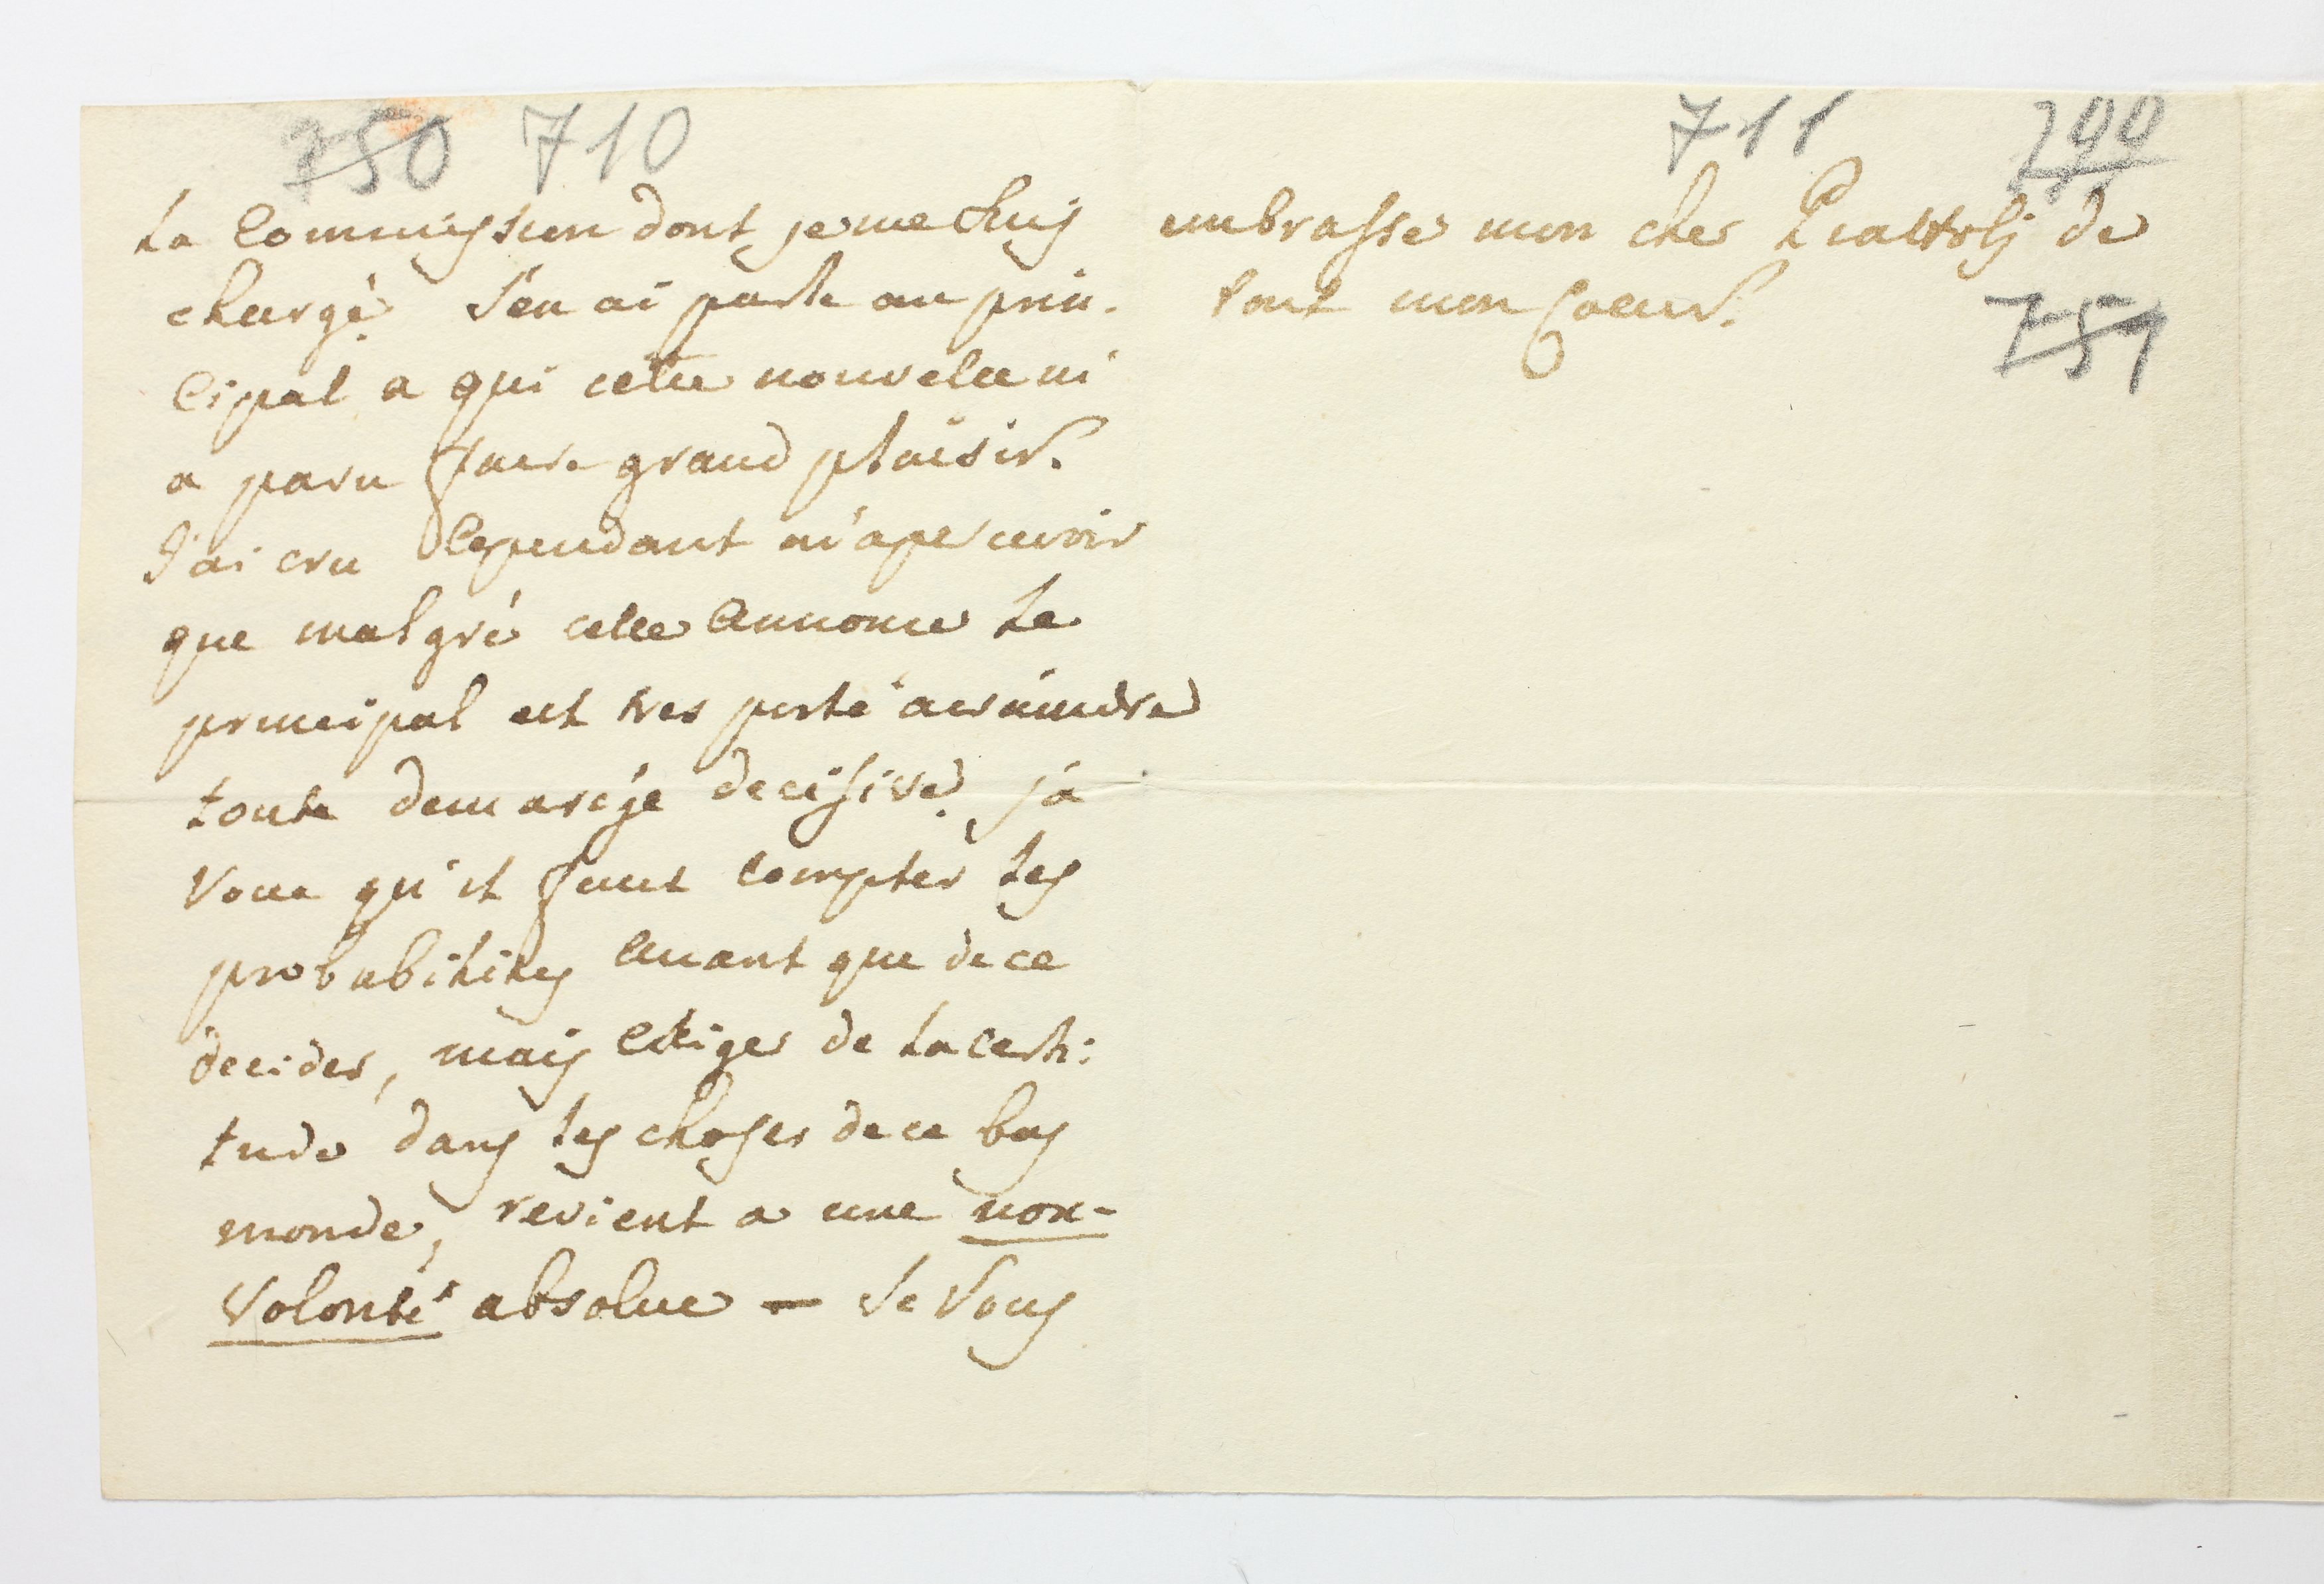 750 710
La Commission dont je me suis
chargé. J'en ai parlé au prin-
cipal a qui cette nouvelle m'
a paru faire grand plaisir.
J'ai cru Cependant m'apercevoir
que malgré cette Annonce Le
principal est tres porté a craindre
toute demarche decisive. j'a
voue qu'il faut compter les
probabilités avant que de ce
decider, mais exiger de la certi:
tude dans les choses de ce bas
monde, revient a une non-
volonté absolue — Je vous
711
embrasse mon cher Piattoli de
tout mon Coeur.
751